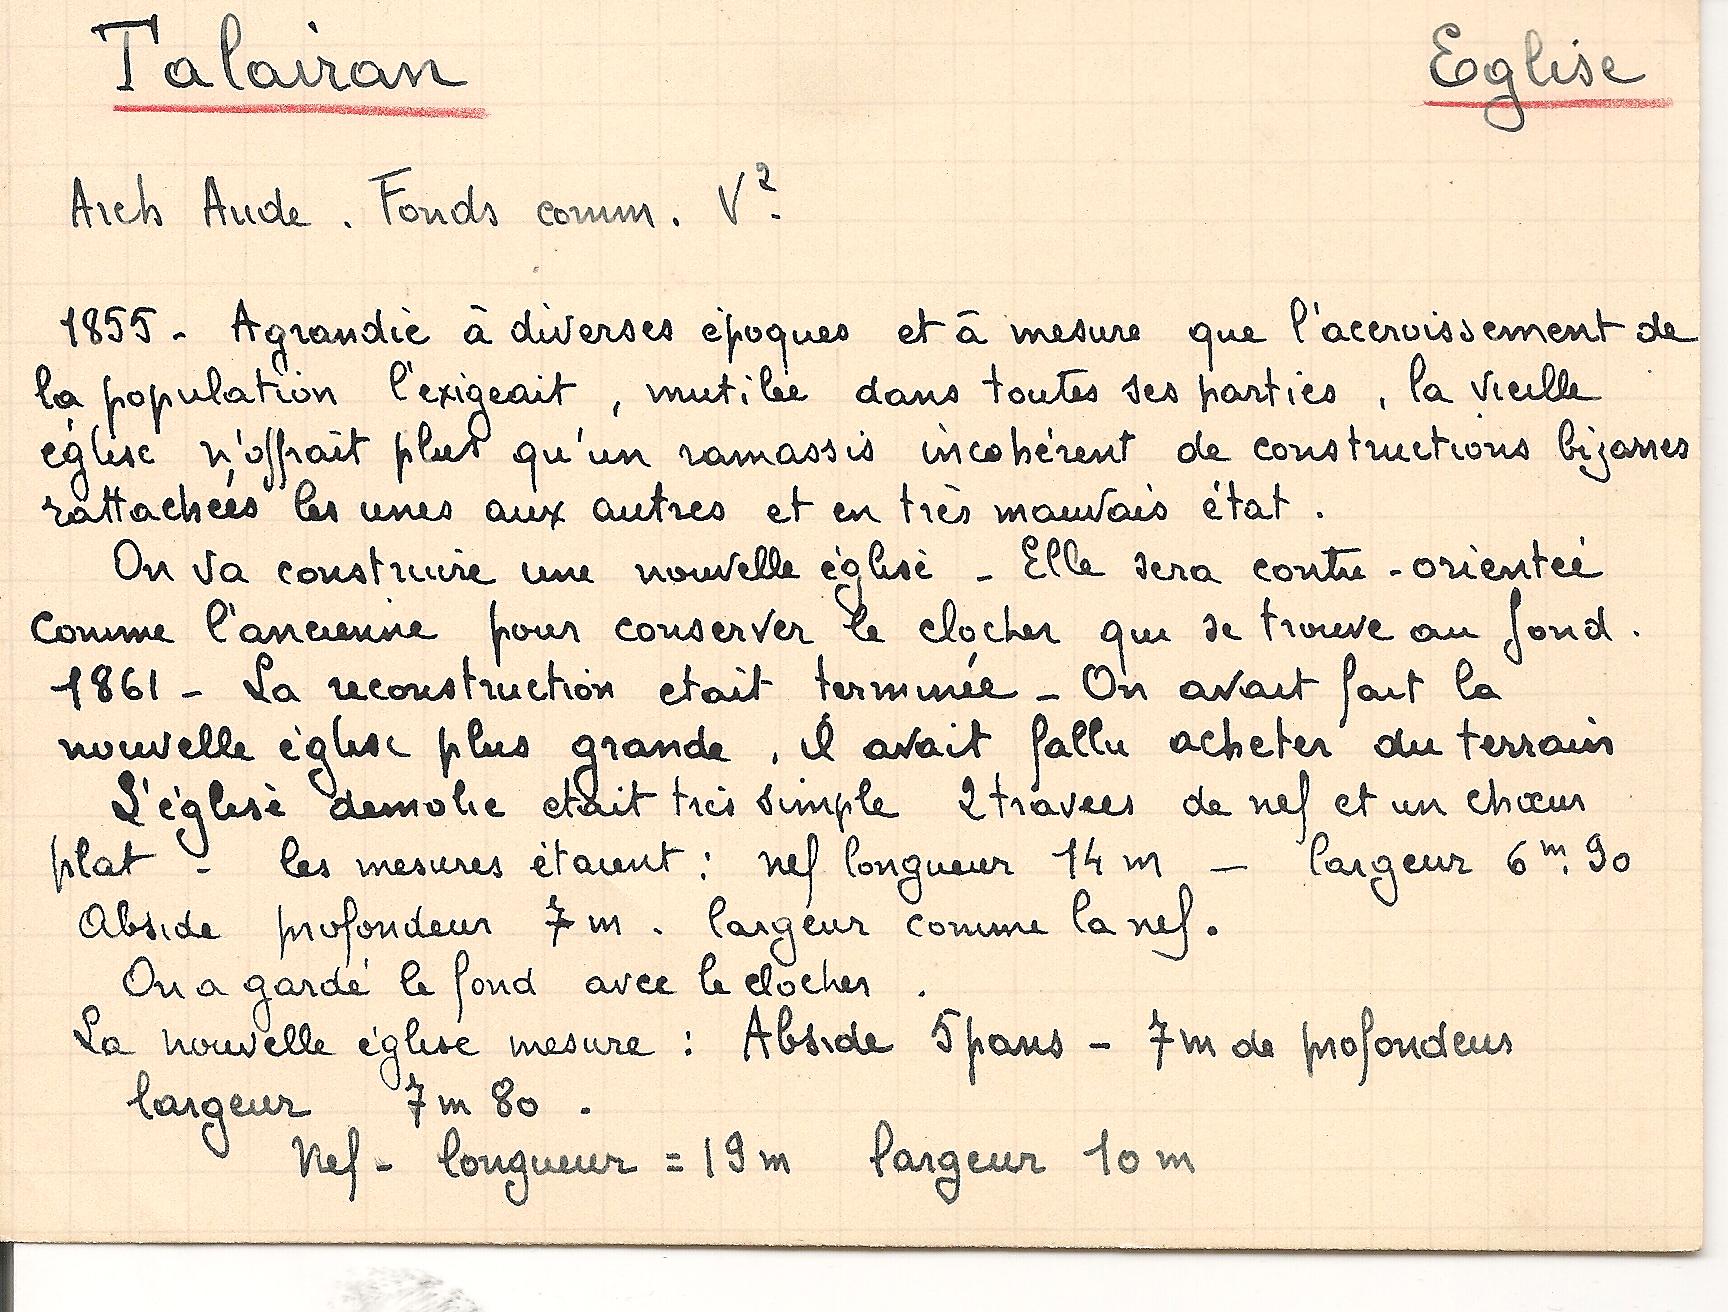 Talairan Eglise
Arch Aude. Fonds comm. V².
1855 - Agrandie à diverses époques et à mesure que l'accroissement de
la population l'exigeait, mutilée dans toutes ses parties, la vieille
église n'offrait plus qu'un ramassis incohérent de constructions bizarres
rattachées les unes aux autres et en très mauvais état.
On va construire une nouvelle église - Elle sera contre-orientée
comme l'ancienne pour conserver le clocher qui se trouve au fond.
1861 - La reconstruction etait terminée - On avait fait la
nouvelle église plus grande, il avait fallu acheter du terrain
L'église demolie etait très simple 2 travees de nef et un chœur
plat - les mesures étaient : nef longueur 14 m - largeur 6 m. 90
Abside profondeur 7 m. largeur comme la nef.
On a gardé le fond avec le clocher.
La nouvelle église mesure : Abside 5 pans - 7 m de profondeur
largeur 7 m 80.
Nef - longueur = 19 m largeur 10 m